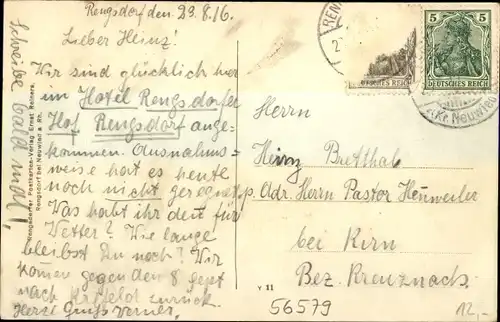 Rengsdorf den 23.8.16.
Lieber Heinz!
Wir sind glücklich hier
im Hotel Rengsdorfer
Hof Rengsdorf ange-
kommen. Ausnahms-
weise hat es heute
noch nicht geregnet.
Was habt ihr dort für
Wetter? Wie lange
bleibst Du noch? Wir
kommen gegen den 8 Sept
nach Krefeld zurück.
Herzl Gruß Werner.
Schreibe bald mal!
Rengsdorfer Postkarten-Verlag Ernst Reiners,
Rengsdorf bei Neuwied a. Rh.
Herrn
Heinz Bretthal
p. Adr. Herrn Pastor Heuweiler
bei Kirn
Bez. Kreuznach.
DEUTSCHES REICH
5 5
DEUTSCHES REICH
REN
(Kr. Neuwied
V 11
56579
12,-